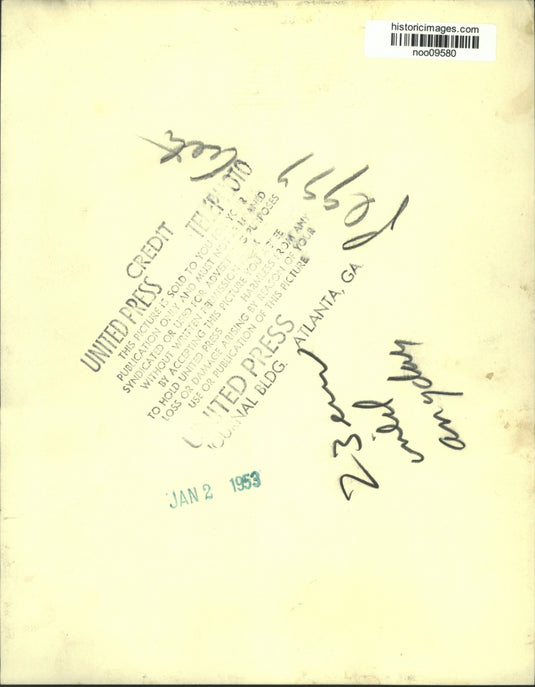 historicimages.com
noo09580
CREDIT
UNITED PRESS TELEPHOTO
THIS PICTURE IS SOLD TO YOU FOR YOUR
PUBLICATION ONLY AND MUST NOT BE LOANED
SYNDICATED OR USED FOR ADVERTISING PURPOSES
WITHOUT WRITTEN PERMISSION
BY ACCEPTING THIS PICTURE YOU AGREE
TO HOLD UNITED PRESS HARMLESS FROM ANY
LOSS OR DAMAGE ARISING BY REASON OF YOUR
USE OR PUBLICATION OF THIS PICTURE
UNITED PRESS
JOURNAL BLDG. ATLANTA, GA
Peggy
23 em
anyday
JAN 2 1953